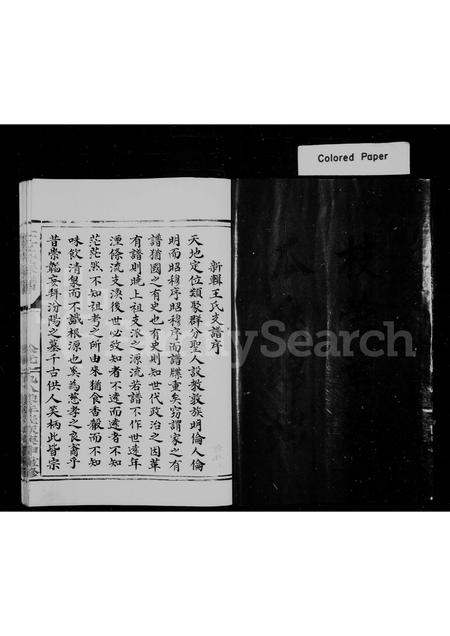 Colored Paper
新輯王氏支譜序
天地定位類聚群分聖人設教敦族明倫人倫
明而昭穆序昭穆序而譜牒重矣竊謂家之有
譜猶國之有史也有史則知世代政治之因革
有譜則曉上祖支派之源流若譜不作世遠年
湮條流支渙後世必致知者不透而透者不知
茫茫然不知祖考之所由來猶食香穀而不知
味飲清泉而不識根源也奚為慈孝之良裔乎
昔崇韜妄拜汾陽之墓千古供人笑柄此皆宗
FamilySearch